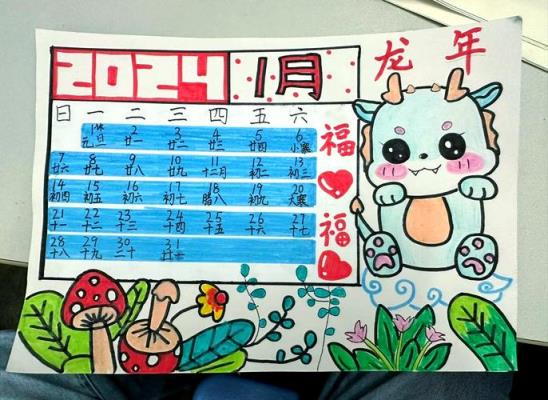 2024 1月
龙年
日 一 二 三 四 五 六
1休 2 3 4 5 6
元旦 廿一 廿二 廿三 廿四 小寒
7 8 9 10 11 12 13
廿六 廿七 廿八 廿九 十二月 初二 初三
14 15 16 17 18 19 20
初四 初五 初六 初七 腊八 初九 大寒
21 22 23 24 25 26 27
十一 十二 十三 十四 十五 十六 十七
28 29 30 31
十八 十九 二十 廿一
福
福